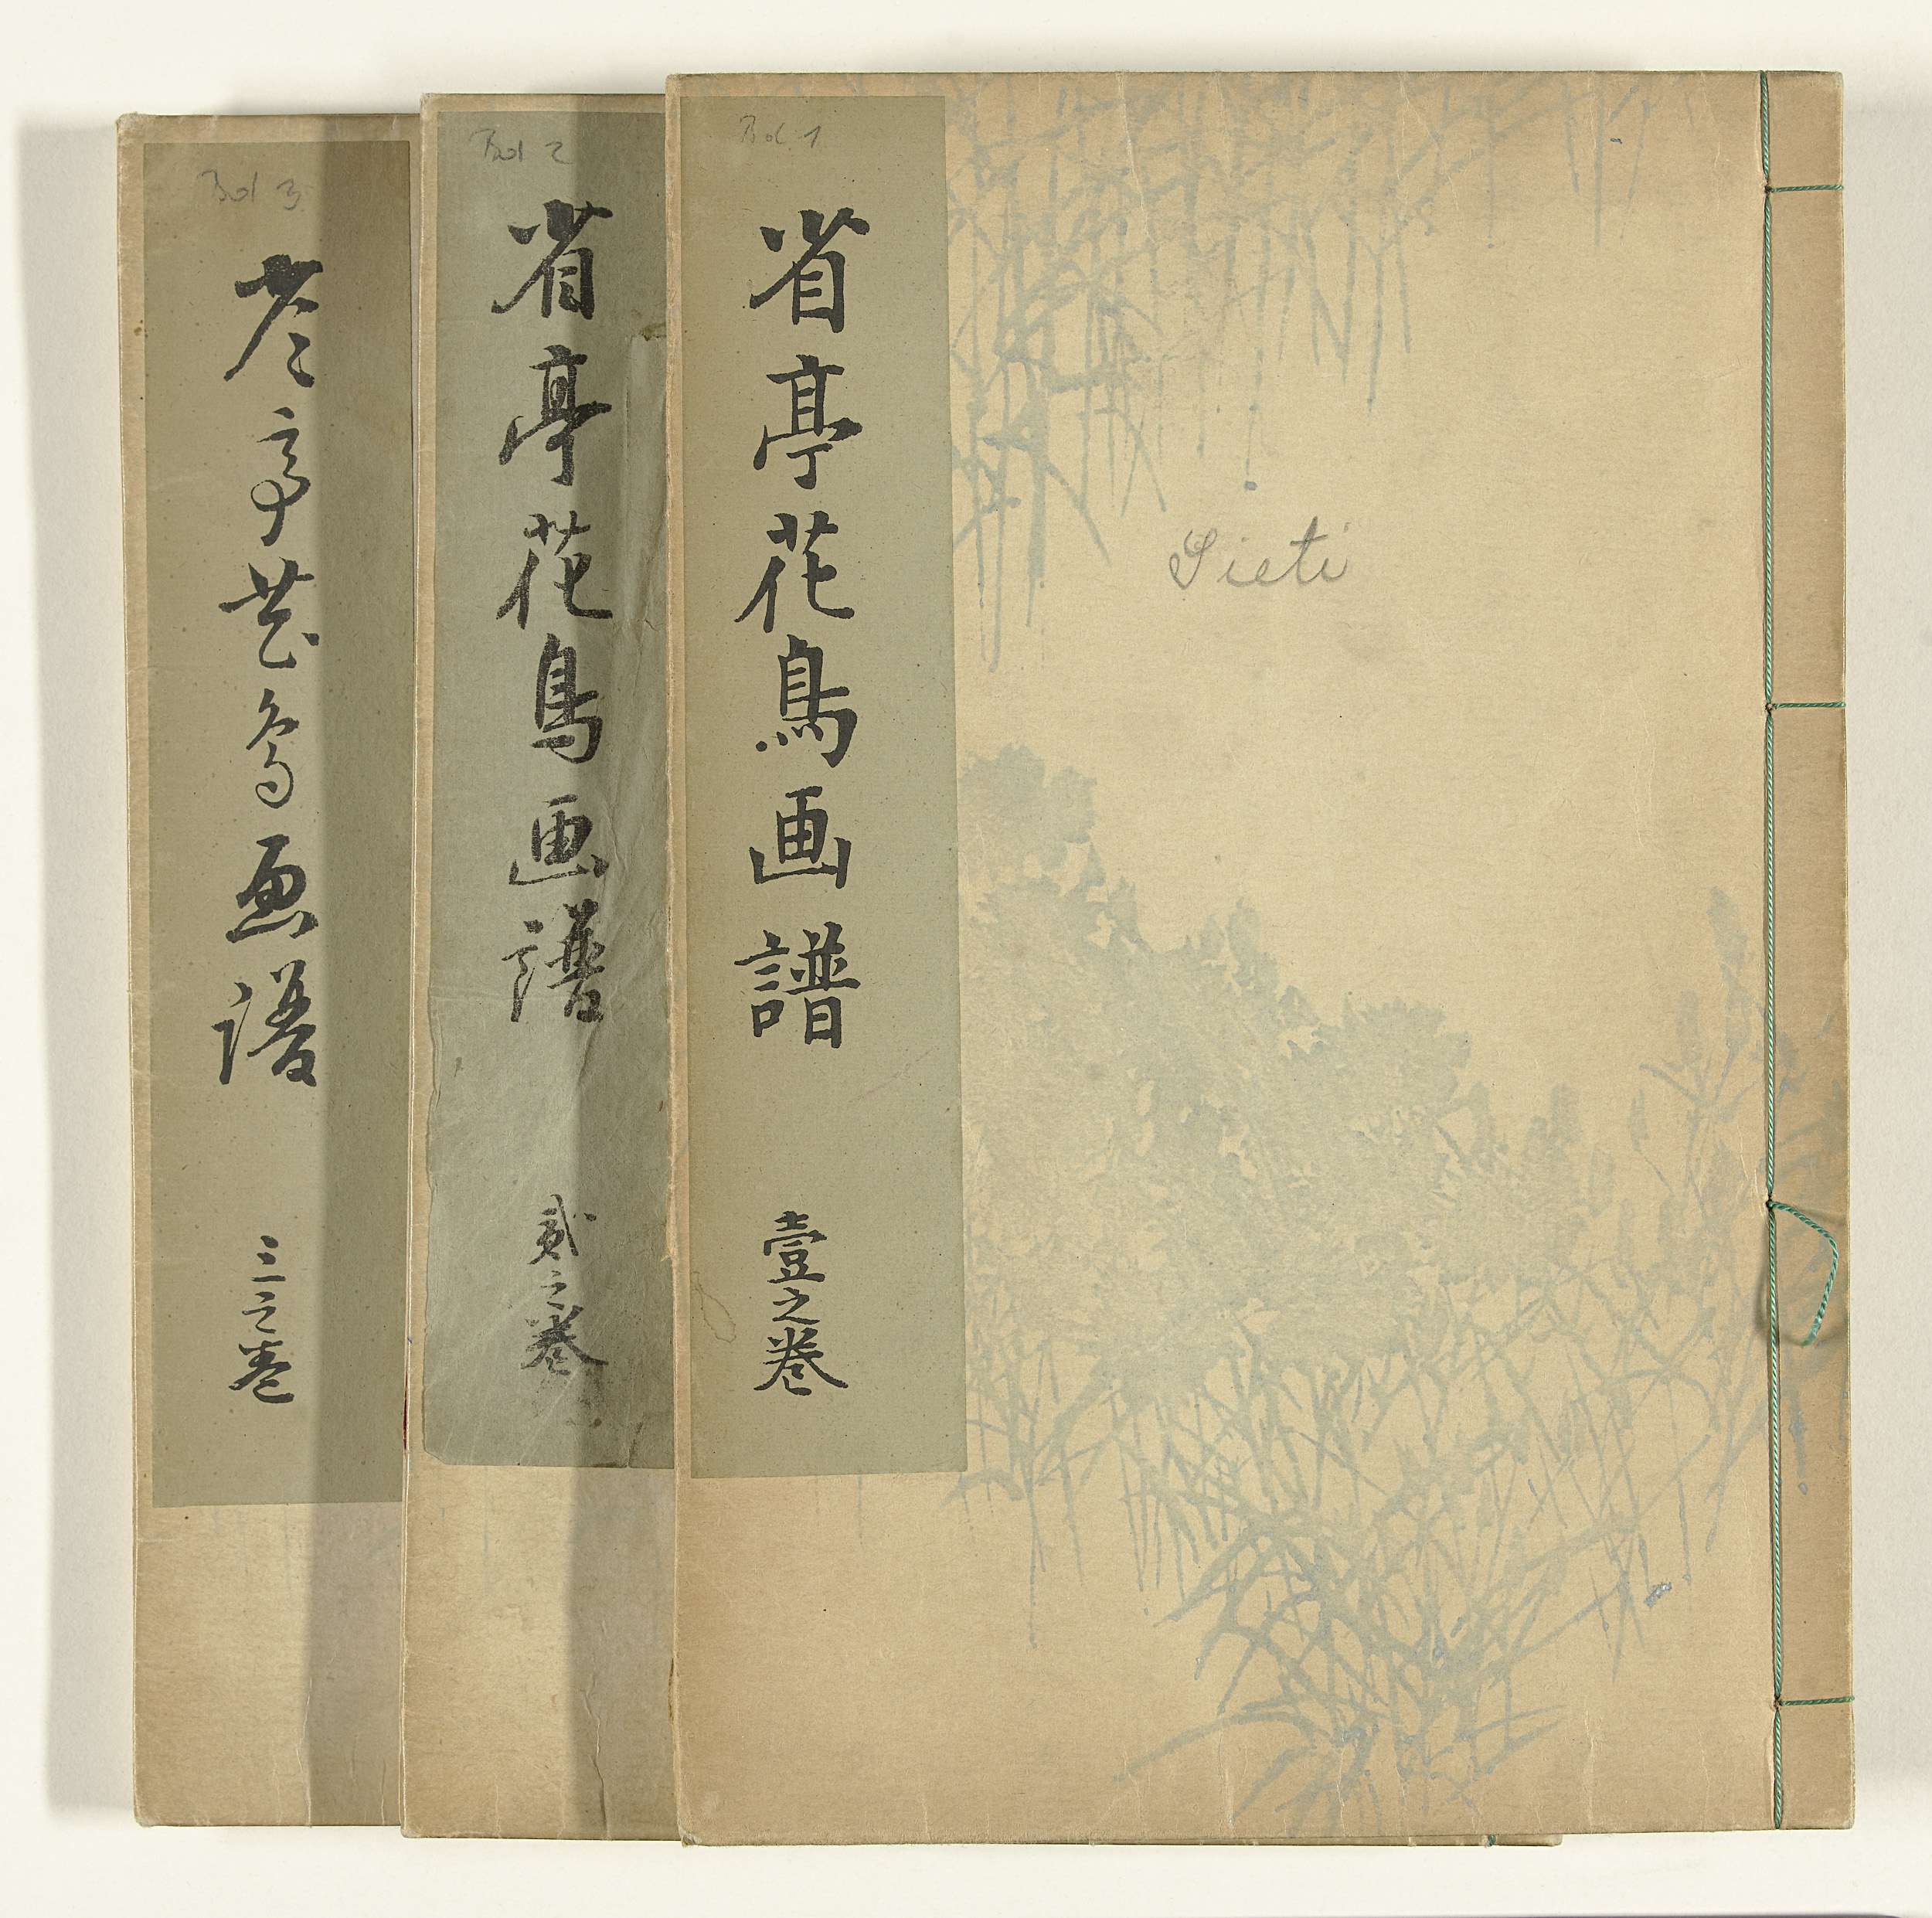 Bd 1
省亭花鳥画譜
壹之巻
Sieti
Bd 2
省亭花鳥画譜
貳之巻
Bd 3
省亭花鳥画譜
三之巻